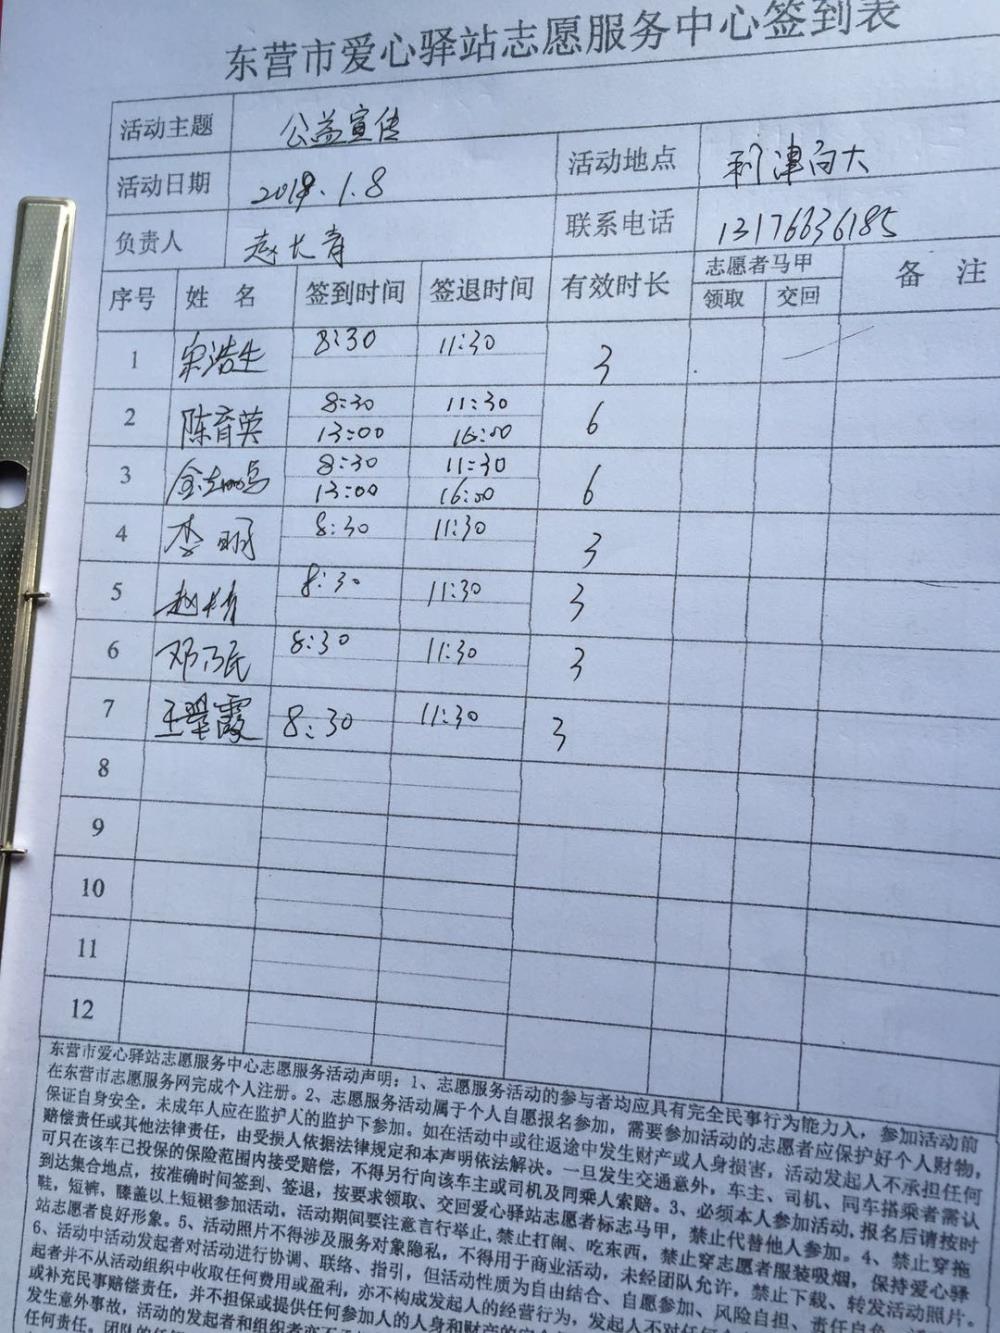 东营市爱心驿站志愿服务中心签到表
活动主题 公益宣传
活动日期 2019.1.8 活动地点 利津向大
负责人 赵长青 联系电话 13176636185
序号 姓 名 签到时间 签退时间 有效时长 志愿者马甲 备 注
领取 交回
1 宋浩生 8:30 11:30 3
2 陈育英 8:30 11:30 6
13:00 16:00
3 8:30 11:30 6
13:00 16:00
4 李 8:30 11:30 3
5 赵 8:30 11:30 3
6 邓乃民 8:30 11:30 3
7 王翠霞 8:30 11:30 3
8
9
10
11
12
东营市爱心驿站志愿服务中心志愿服务活动声明：1、志愿服务活动的参与者均应具有完全民事行为能力人，参加活动前
在东营市志愿服务网完成个人注册。2、志愿服务活动属于个人自愿报名参加，需要参加活动的志愿者应保护好个人财物，
保证自身安全，未成年人应在监护人的监护下参加。如在活动中或往返途中发生财产或人身损害，活动发起人不承担任何
赔偿责任或其他法律责任，由受损人依据法律规定和本声明依法解决。一旦发生交通意外，车主、司机、同车搭乘者需认
可只在该车已投保的保险范围内接受赔偿，不得另行向该车主或司机及同乘人索赔。3、必须本人参加活动，报名后请按时
到达集合地点，按准确时间签到、签退，按要求领取、交回爱心驿站志愿者标志马甲，禁止代替他人参加。4、禁止穿拖
鞋，短裤，膝盖以上短裙参加活动，活动期间要注意言行举止，禁止打闹、吃东西，禁止穿志愿者服装吸烟，保持爱心驿
站志愿者良好形象。5、活动照片不得涉及服务对象隐私，不得用于商业活动，未经团队允许，禁止下载、转发活动照片。
6、活动中活动发起者对活动进行协调、联络、指引，但活动性质为自由结合、自愿参加、风险自担、责任自负
起者并不从活动组织中收取任何费用或盈利，亦不构成发起人的经营行为，发起人不对任何
或补充民事赔偿责任，并不担保或提供任何参加人的人身和财产的安全
发生意外事故，活动的发起者和组织者亦不承
任何责任。团队的任